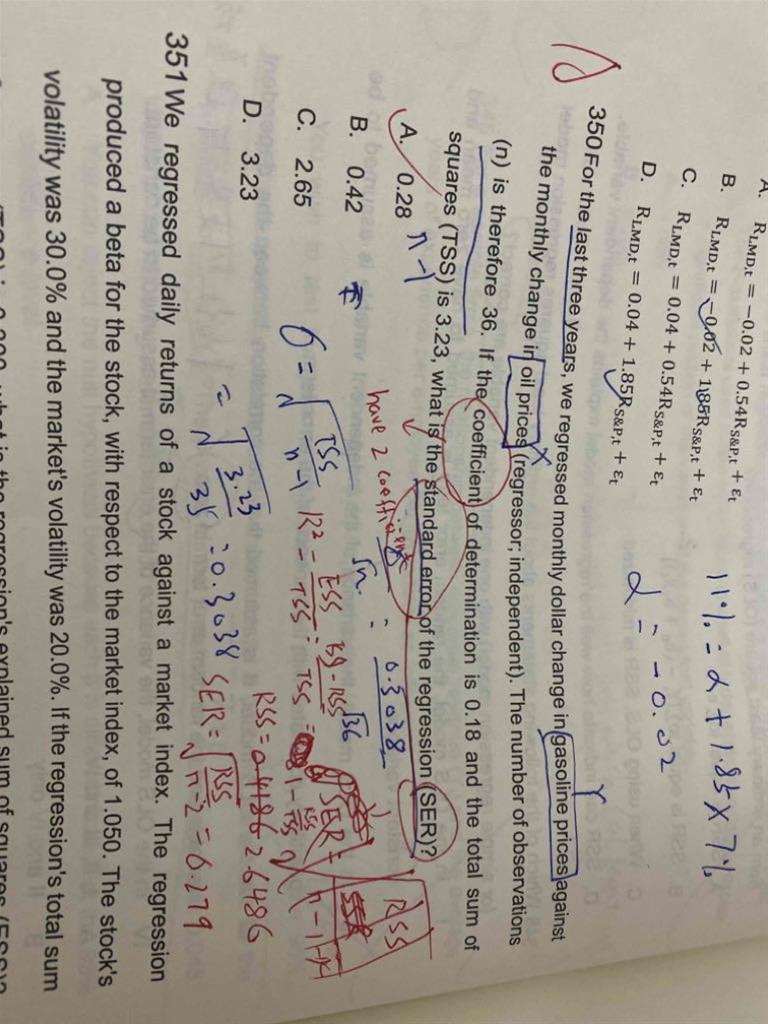 A. R_LMD,t = −0.02 + 0.54R_S&P,t + ε_t
B. R_LMD,t = −0.02 + 1.85R_S&P,t + ε_t
C. R_LMD,t = 0.04 + 0.54R_S&P,t + ε_t
D. R_LMD,t = 0.04 + 1.85R_S&P,t + ε_t
11% = α + 1.85 × 7%
α = −0.02
350 For the last three years, we regressed monthly dollar change in gasoline prices against
the monthly change in oil prices (regressor; independent). The number of observations
(n) is therefore 36. If the coefficient of determination is 0.18 and the total sum of
squares (TSS) is 3.23, what is the standard error of the regression (SER)?
Y
X
A. 0.28
B. 0.42
C. 2.65
D. 3.23
n−1
have 2 coefficient
√n = 0.3038
√36
σ = √TSS/n−1
= √3.23/35 = 0.3038
R² = ESS/TSS = TSS−RSS/TSS = 1 − RSS/TSS
SER = √RSS/n−1−k
SER = √RSS/n−2 = 0.279
351 We regressed daily returns of a stock against a market index. The regression
produced a beta for the stock, with respect to the market index, of 1.050. The stock's
volatility was 30.0% and the market's volatility was 20.0%. If the regression's total sum
what is the regression's explained sum of squares (ESS)?